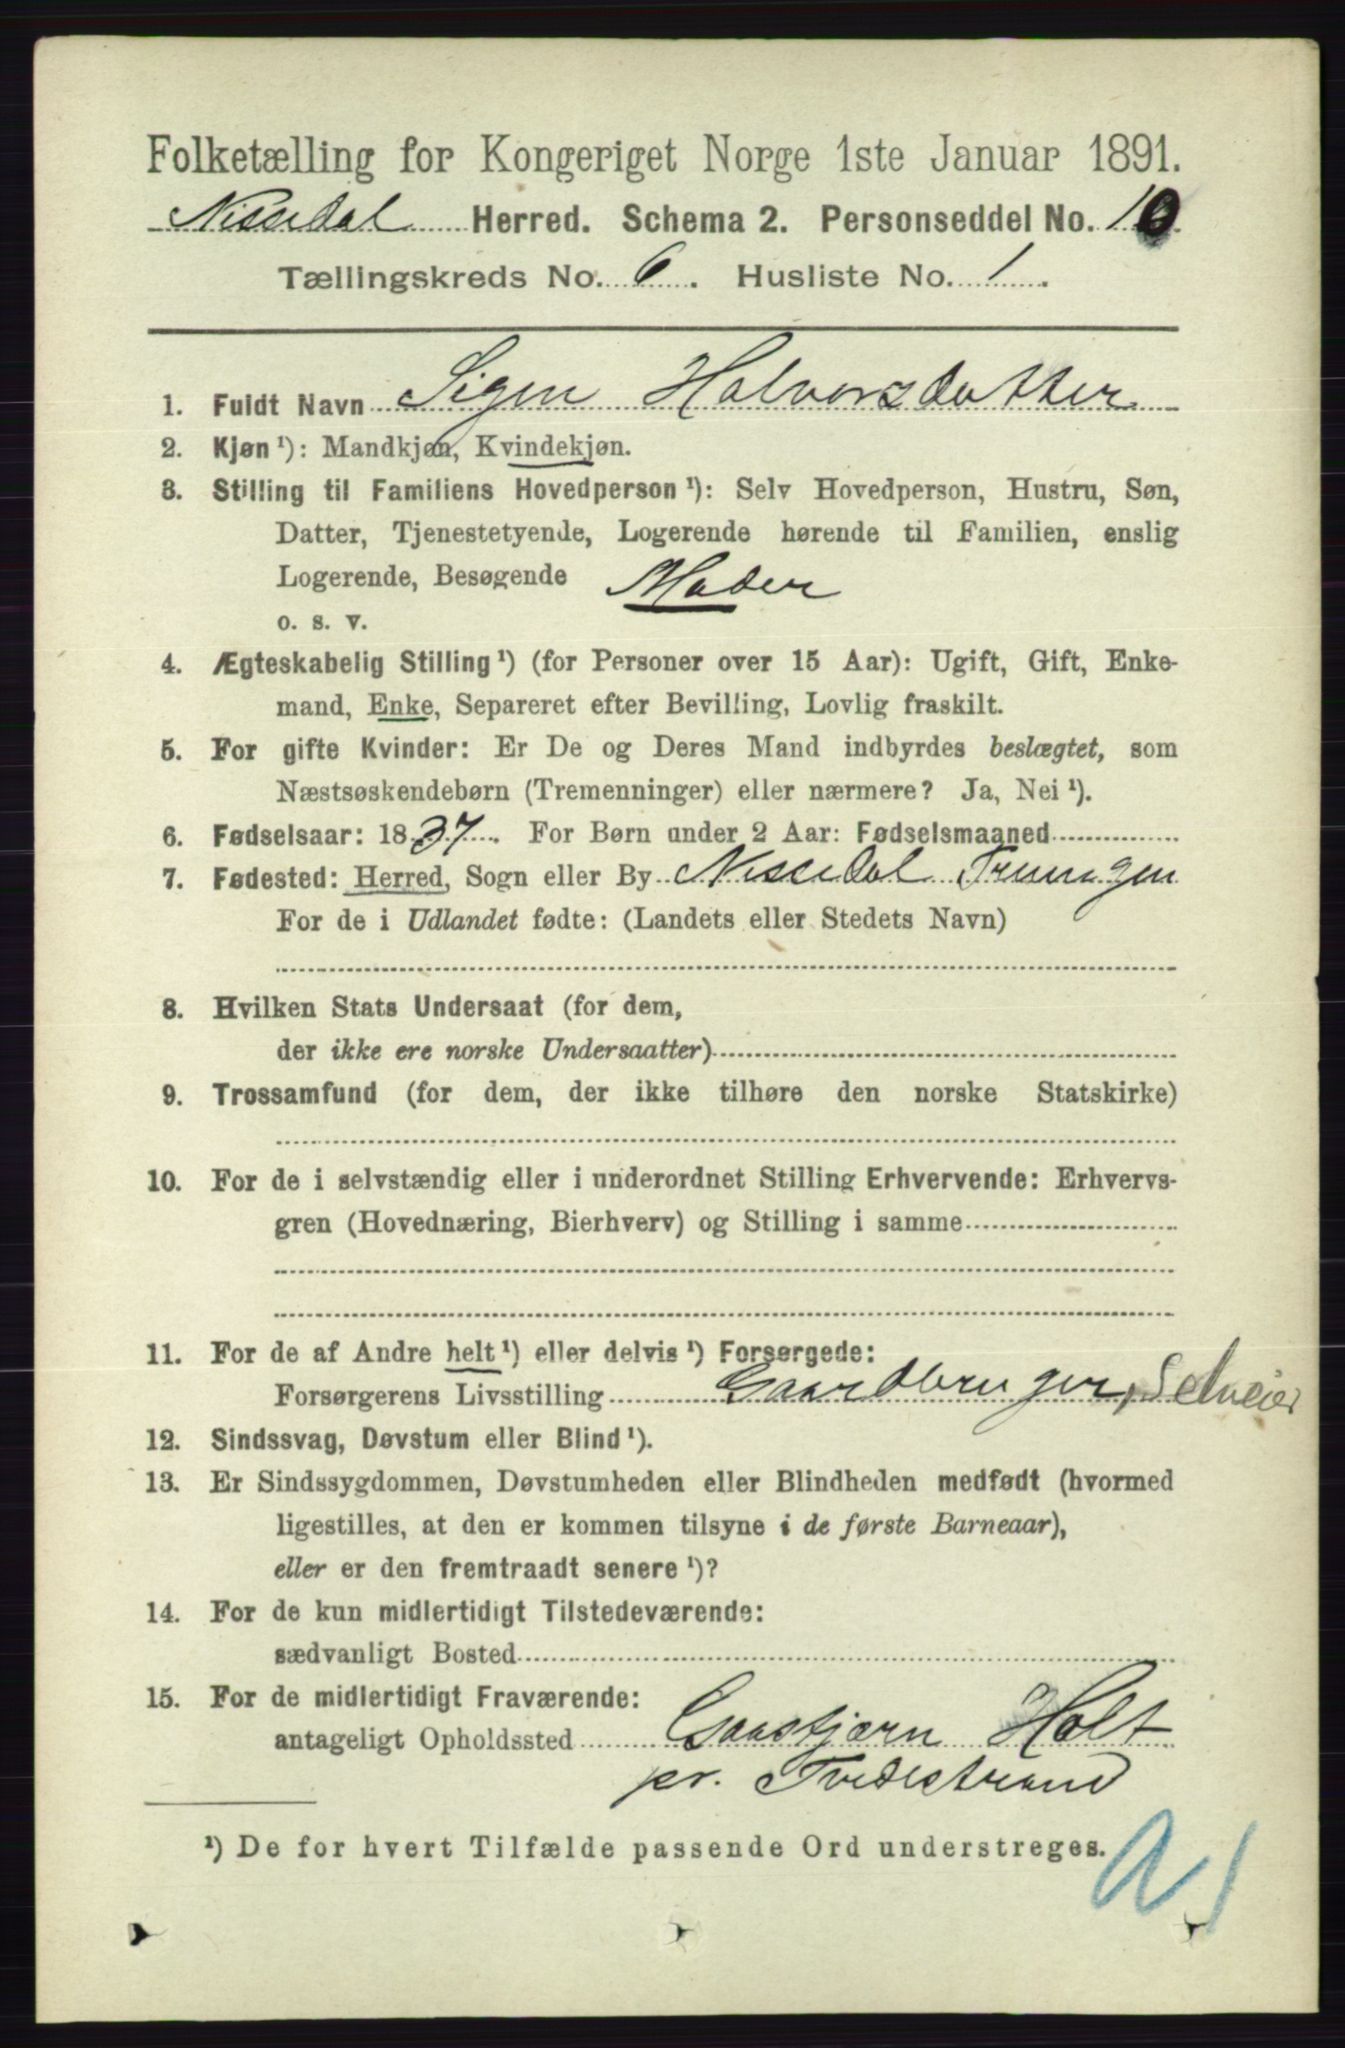 Folketælling for Kongeriget Norge 1ste Januar 1891.
Nissedal Herred. Schema 2. Personseddel No. 10.
Tællingskreds No. 6. Husliste No. 1.
1. Fuldt Navn Sigen Halvorsdatter
2. Kjøn ¹): Mandkjøn, Kvindekjøn.
3. Stilling til Familiens Hovedperson ¹): Selv Hovedperson, Hustru, Søn,
Datter, Tjenestetyende, Logerende hørende til Familien, enslig
Logerende, Besøgende Moder
o. s. v.
4. Ægteskabelig Stilling ¹) (for Personer over 15 Aar): Ugift, Gift, Enke-
mand, Enke, Separeret efter Bevilling, Lovlig fraskilt.
5. For gifte Kvinder: Er De og Deres Mand indbyrdes beslægtet, som
Næstsøskendebørn (Tremenninger) eller nærmere? Ja, Nei ¹).
6. Fødselsaar: 1837. For Børn under 2 Aar: Fødselsmaaned
7. Fødested: Herred, Sogn eller By Nissedal Treungen
For de i Udlandet fødte: (Landets eller Stedets Navn)
8. Hvilken Stats Undersaat (for dem,
der ikke ere norske Undersaatter)
9. Trossamfund (for dem, der ikke tilhøre den norske Statskirke)
10. For de i selvstændig eller i underordnet Stilling Erhvervende: Erhvervs-
gren (Hovednæring, Bierhverv) og Stilling i samme
11. For de af Andre helt ¹) eller delvis ¹) Forsørgede:
Forsørgerens Livsstilling Gaardbruger, Selveier
12. Sindssvag, Døvstum eller Blind ¹).
13. Er Sindssygdommen, Døvstumheden eller Blindheden medfødt (hvormed
ligestilles, at den er kommen tilsyne i de første Barneaar),
eller er den fremtraadt senere ¹)?
14. For de kun midlertidigt Tilstedeværende:
sædvanligt Bosted
15. For de midlertidigt Fraværende:
antageligt Opholdssted Gaastjærn Holt
pr. Tvedestrand
¹) De for hvert Tilfælde passende Ord understreges.